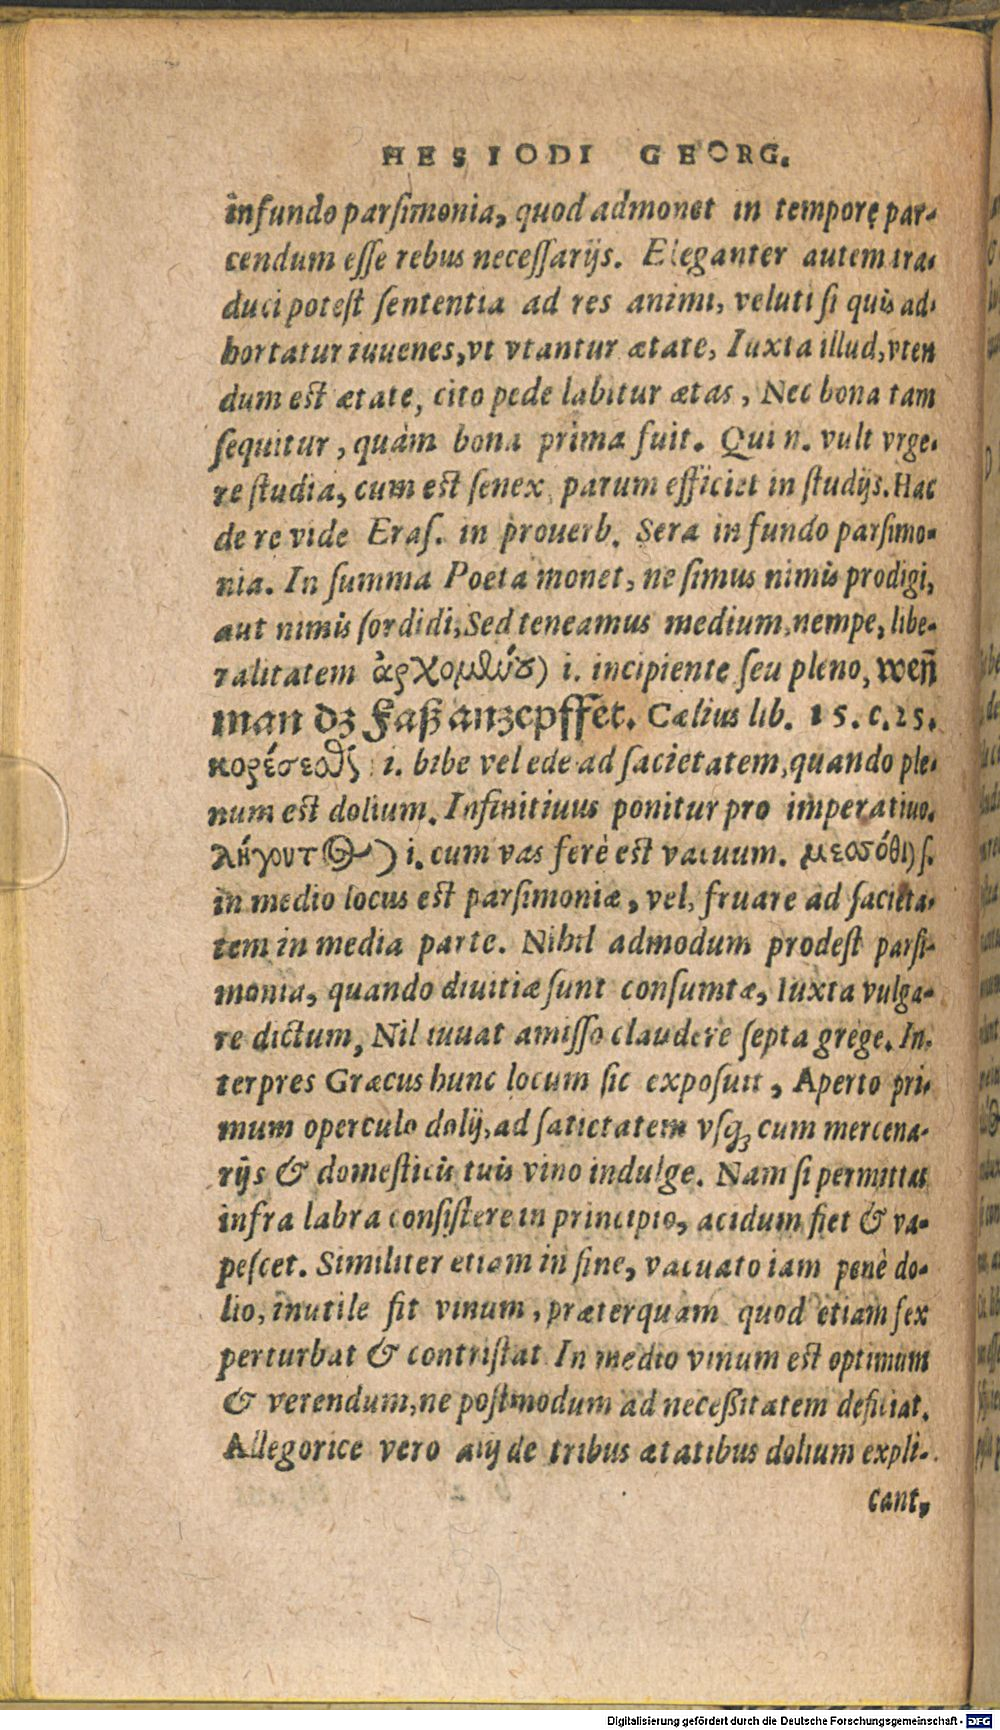 HESIODI GEORG.
in fundo parsimonia, quod admonet in temporę par-
cendum esse rebus necessarijs. Eleganter autem tra-
duci potest sententia ad res animi, veluti si quis ad-
hortatur iuuenes, vt vtantur ætate, Iuxta illud, vten
dum est ætate, cito pede labitur ætas, Nec bona tam
sequitur, quàm bona prima fuit. Qui n. vult vrge-
re studia, cum est senex, parum efficiet in studijs. Hac
de re vide Eras. in prouerb. Sera in fundo parsimo-
nia. In summa Poeta monet, ne simus nimis prodigi,
aut nimis sordidi, Sed teneamus medium, nempe, libe-
ralitatem ἀρχομένου) i. incipiente seu pleno, wen̄
man dz Faß anzepffet. Cælius lib. 15. c. 25.
κορέσεσθαι i. bibe vel ede ad sacietatem, quando ple-
num est dolium. Infinitiuus ponitur pro imperatiuo.
λήγοντος) i. cum vas ferè est vacuum. μεσσόθι) s.
in medio locus est parsimoniæ, vel, fruare ad sacieta-
tem in media parte. Nihil admodum prodest parsi-
monia, quando diuitiæ sunt consumtæ, Iuxta vulga-
re dictum, Nil iuuat amisso claudere septa grege. In-
terpres Græcus hunc locum sic exposuit, Aperto pri-
mum operculo dolij, ad satietatem vsq́; cum mercena-
rijs & domesticis tuis vino indulge. Nam si permittas
infra labra consistere in principio, acidum fiet & va-
pescet. Similiter etiam in fine, vacuato iam penè do-
lio, inutile fit vinum, præterquam quod etiam fex
perturbat & contristat In medio vinum est optimum
& verendum, ne postmodum ad necessitatem deficiat.
Allegorice vero alij de tribus ætatibus dolium expli-
cant,
Digitalisierung gefördert durch die Deutsche Forschungsgemeinschaft - DFG